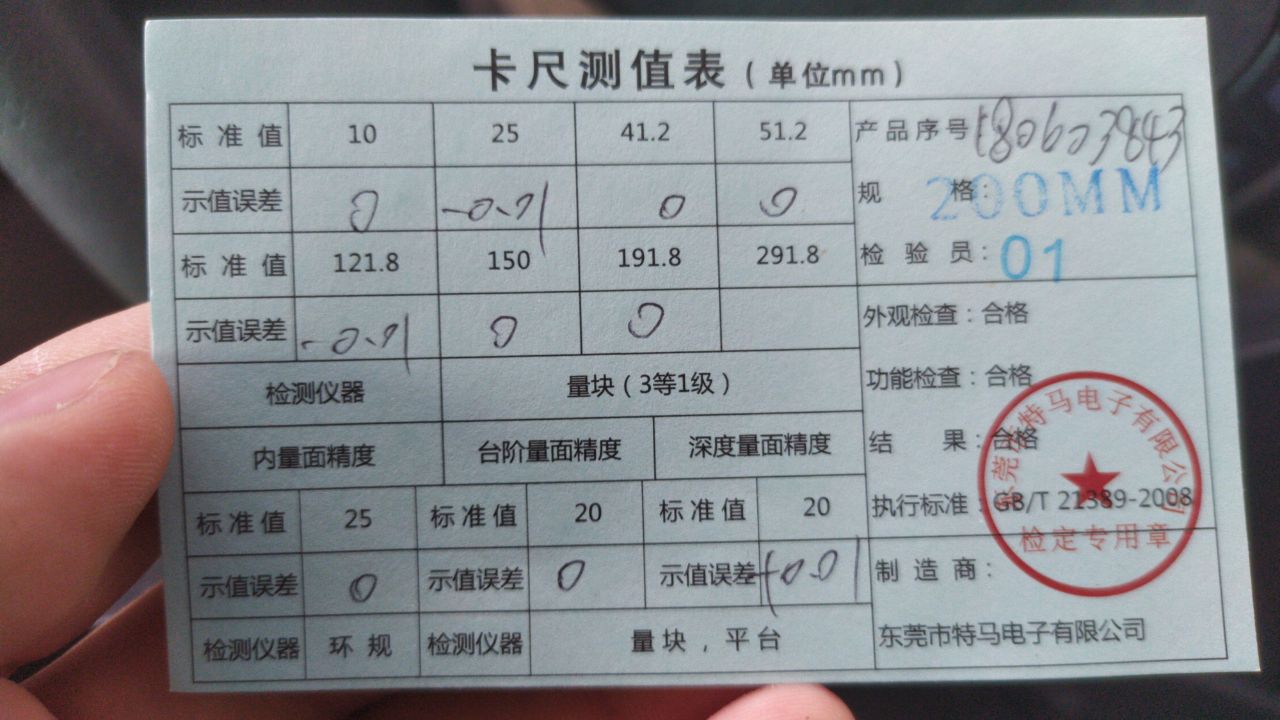 卡尺测值表（单位mm）
标准值 10 25 41.2 51.2
示值误差 0 -0.01 0 0
标准值 121.8 150 191.8 291.8
示值误差 -0.01 0 0
检测仪器 量块（3等1级）
内量面精度 台阶量面精度 深度量面精度
标准值 25 标准值 20 标准值 20
示值误差 0 示值误差 0 示值误差 +0.01
检测仪器 环规 检测仪器 量块，平台
产品序号 180603843
规 格：200MM
检 验 员：01
外观检查：合格
功能检查：合格
结 果：合格
执行标准：GB/T 21389-2008
制 造 商：
东莞市特马电子有限公司
东莞市特马电子有限公司
检定专用章